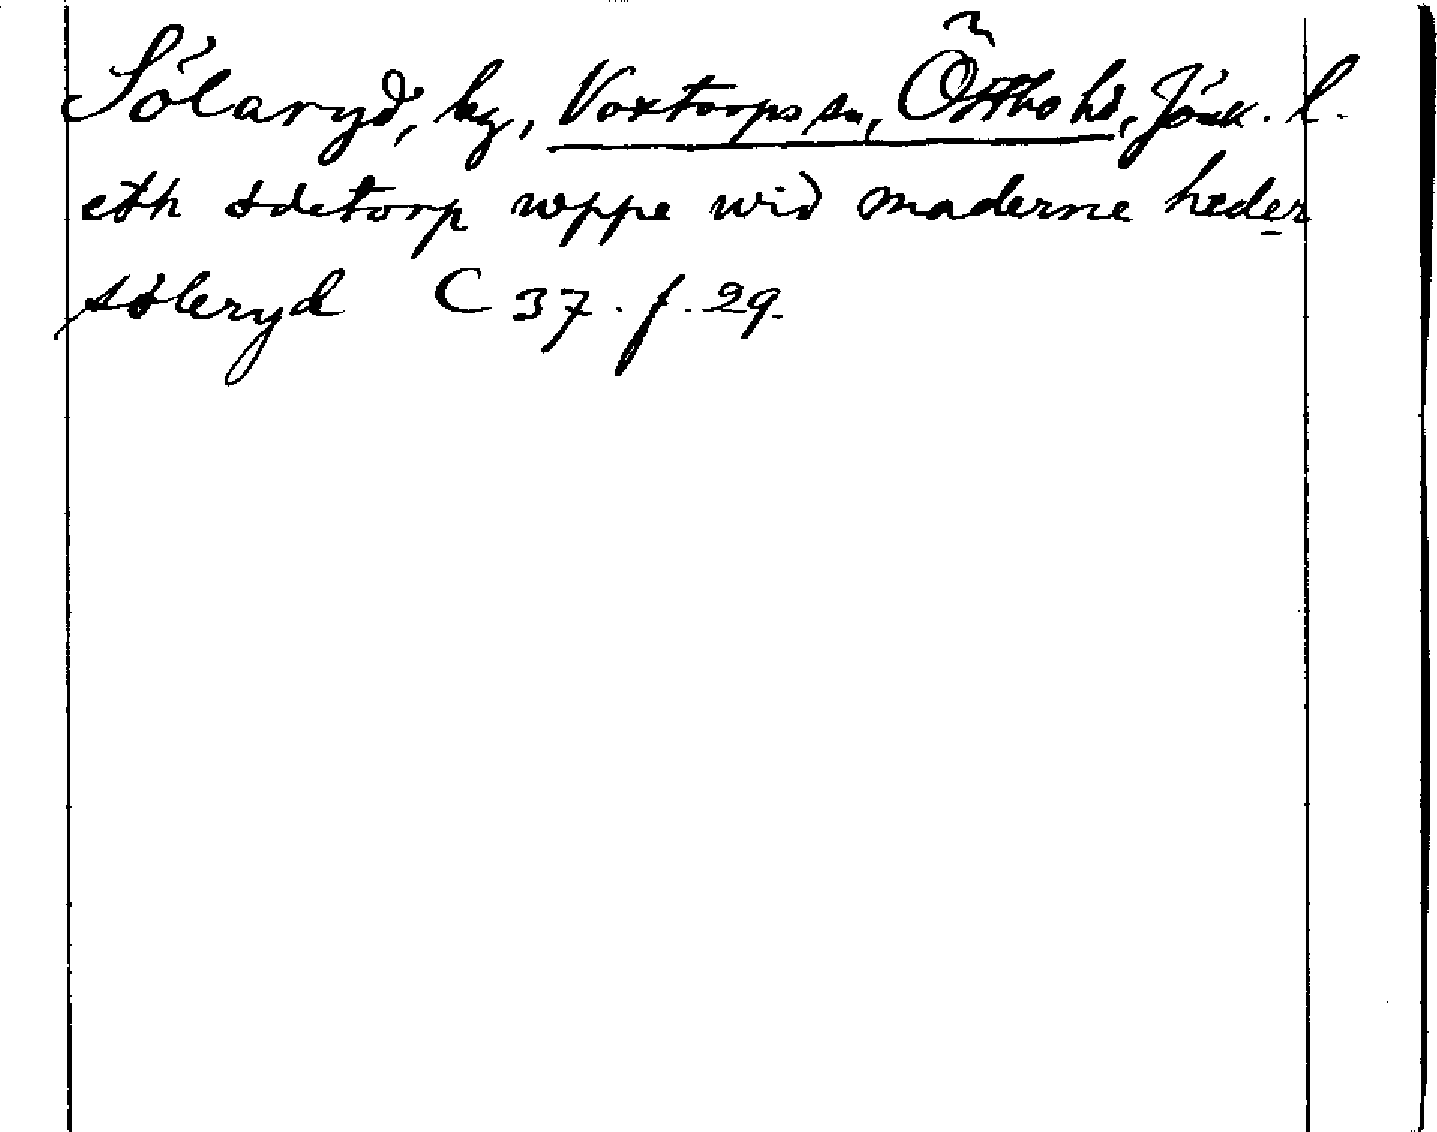 Sölaryd, by, Voxtorps sn, Östbo hd, Jönk. l.
eth ødetorp wppe wid maderne heder
søleryd C 37. f. 29.